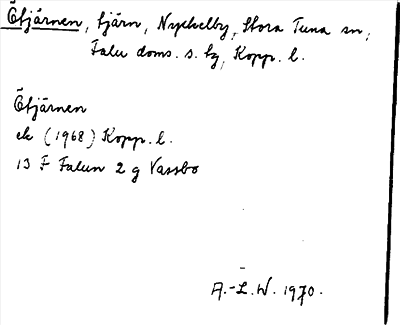 Öltjärnen, tjärn, Nyckelby, Stora Tuna sn,
Falu doms. s. tg, Kopp. l.
Öltjärnen
ek (1968) Kopp. l.
13 F Falun 2 g Vassbo
A.-L. W. 1970.